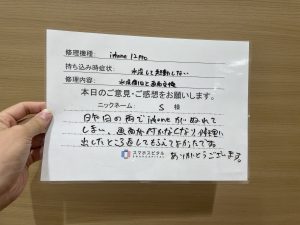 修理機種: iphone 12 Pro
持ち込み時症状: 水没して起動しない
修理内容: 水没復旧と画面交換
本日のご意見・ご感想をお願いします。
ニックネーム: S 様
日や日の雨でiphoneがぬれて
しまい、画面が付かなくなり修理に
出したところ直してもらえてよかったです。
ありがとうございます。
スマホスピタル